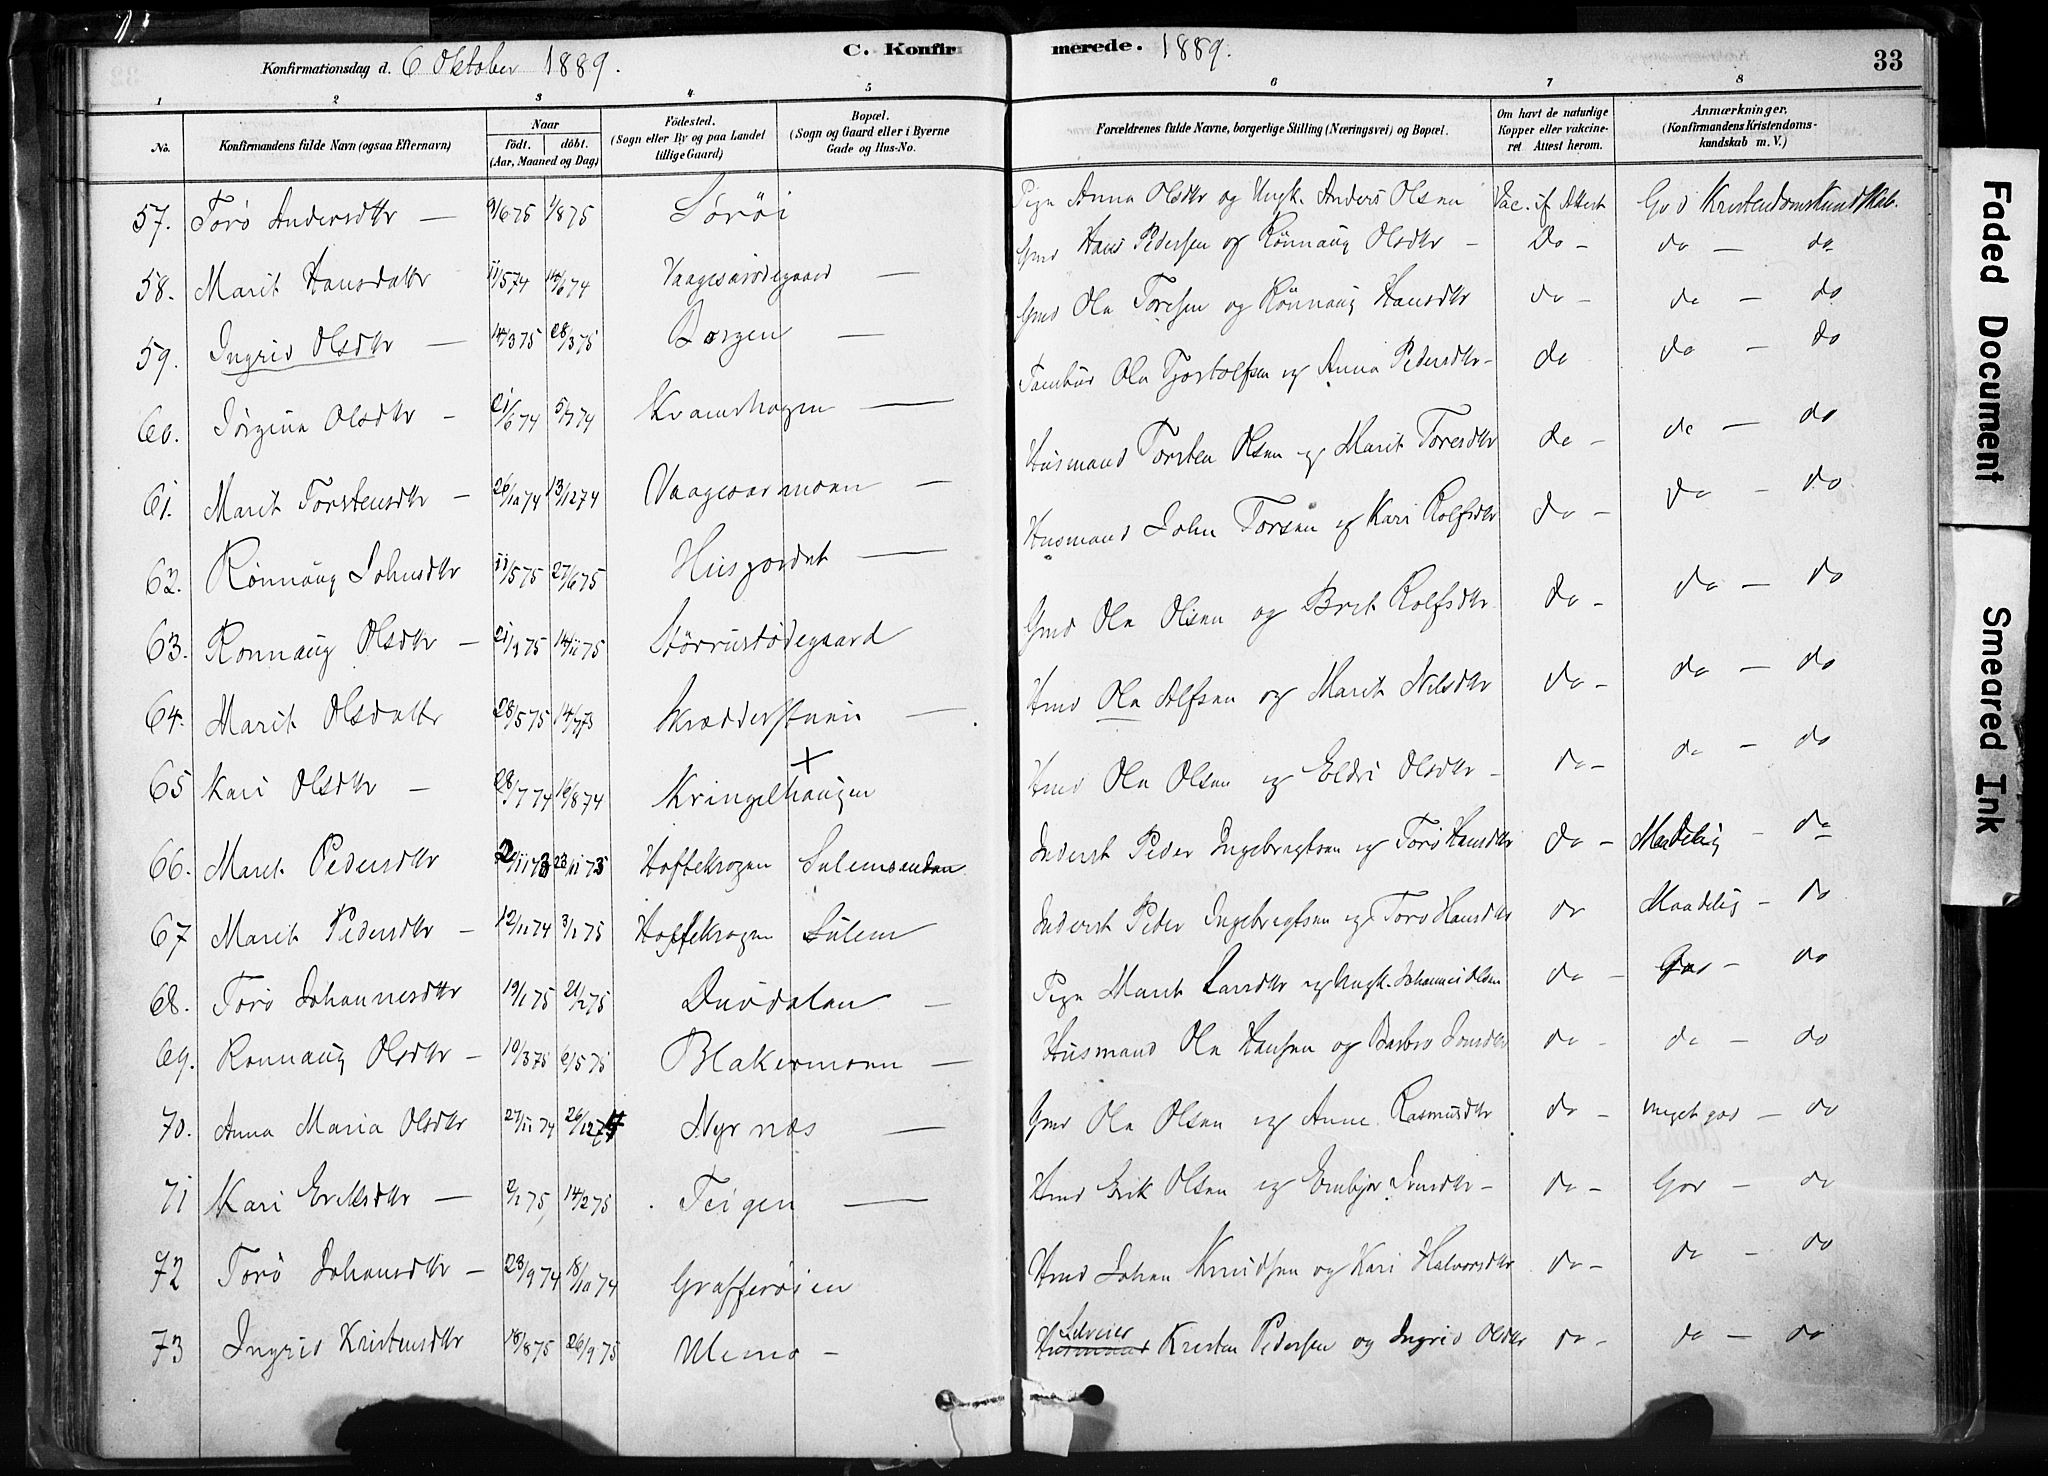 Konfirmationsdag d. 6 Oktober 1889.
C. Konfirmerede. 1889.
33
1 2 3 4 5 6 7 8
No.
Konfirmandens fulde Navn (ogsaa Efternavn)
Naar
født. døbt.
(Aar, Maaned og Dag)
Fødested.
(Sogn eller By og paa Landet
tillige Gaard)
Bopæl.
(Sogn og Gaard eller i Byerne
Gade og Hus-No.
Forældrenes fulde Navne, borgerlige Stilling (Næringsvei) og Bopæl.
Om havt de naturlige
Kopper eller vakcine-
ret Attest herom.
Anmærkninger.
(Konfirmandens Kristendoms-
kundskab m. V.)
57. Torø Andersdtr — 9/6 75 1/8 75 Sørøi Pige Anna Olsdtr og Ungk. Anders Olsen Vac. if. Attest God Kristendomskundskab.
58. Marit Hansdattr 11/5 74 14/6 74 Vaagesarødegaard — Gmd Hans Pedersen og Rønnaug Olsdtr — Do — do — do
59. Ingrid Olsdtr — 14/3 75 28/3 75 Borgen — Gmd Ola Toresen og Rønnaug Hansdtr do — do — do
60. Jørgina Olsdtr — 21/6 74 5/7 74 Kramshagen — Tambur Ola Tjostolfsen og Anna Pedersdtr — do do — do
61. Marit Torstensdtr — 26/10 74 13/12 74 Vaagesarmoen — Husmand Torsten Olsen og Marit Toresdtr do — do — do
62. Rønnaug Johnsdtr 11/5 75 27/6 75 Husjordet — Husmand John Torsen og Kari Rolfsdtr do — do — do
63. Rønnaug Olsdtr — 21/9 75 14/11 75 Størrustødegaard Gmd Ola Olsen og Brit Rolfsdtr do — do — do
64. Marit Olsdattr 28/5 75 Skrædderstuen — Hmd Ola Alfsen og Marit Nilsdtr do — do — do
65 Kari Olsdtr — 28/7 74 16/8 74 Kringelhaugen + Hmd Ola Olsen og Eldri Olsdtr — do — do — do
66. Maret Pedersdtr 2/11 73 23/11 73 Hoftekrogen Sulemsenden Inderst Peder Ingebregtsen og Torø Hansdtr do — Maadelig — do
67 Marit Pedersdtr — 12/11 74 3/1 75 Hoftekrogen Sulem Inderst Peder Ingebregtsen og Torø Hansdtr do Maadelig — do
68. Torø Johannesdtr 19/1 75 21/2 75 Duvdalen — Pige Marit Larsdtr og Ungk. Johannes Olsen do — God — do
69. Rønnaug Olsdtr — 10/3 75 2/5 75 Blakermoen — Husmand Ola Hansen og Barbro Jonsdtr do — do — do
70. Anna Maria Olsdtr 27/11 74 26/12 74 Nyrnæs — Gmd Ola Olsen og Anne Rasmusdtr do — meget god — do
71 Kari Eriksdtr — 2/1 75 14/2 75 Teigen — Hmd Erik Olsen og Embjør Jonsdtr — do — God — do
72 Torø Johansdtr — 23/9 74 18/10 74 Grafferøien Hmd Johan Knudsen og Kari Halvorsdtr do — do — do
73 Ingrid Kristensdtr 18/8 75 26/9 75 Ulemo — Husmand Selveier Kristen Pedersen og Ingrid Olsdtr do — do — do
Faded Document
Smeared Ink